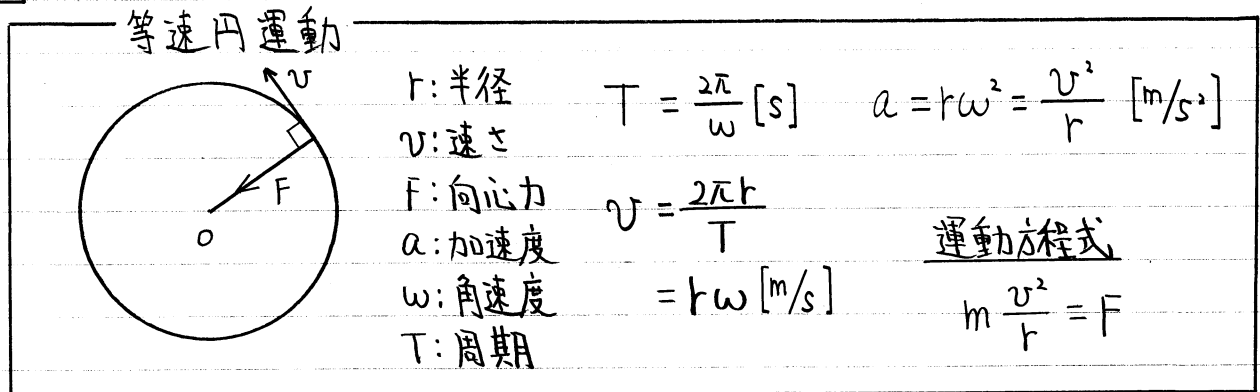 等速円運動
v
F
O
r:半径
v:速さ
F:向心力
a:加速度
ω:角速度
T:周期
T = 2π/ω [s]
v = 2πr/T
= rω [m/s]
a = rω² = v²/r [m/s²]
運動方程式
m v²/r = F